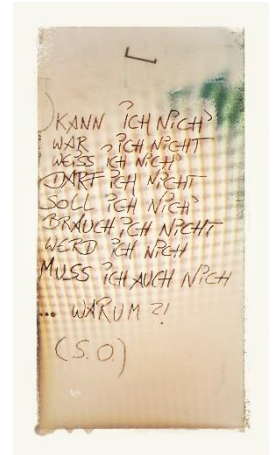 KANN ICH NICH
WAR ICH NICHT
WEISS ICH NICH
DARF ICH NICHT
SOLL ICH NICH
BRAUCH ICH NICHT
WERD ICH NICH
MUSS ICH AUCH NICH
... WARUM ?!
(S.O)